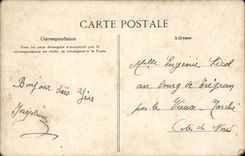 CARTE POSTALE
Correspondance
Tous les pays étrangers n'acceptent pas la
correspondance au recto, se renseigner à la Poste
Adresse
Bonjour
Joséphine
Melle Eugénie Nicol
au bourg de Trégrom
par le Vieux-Marché
Côtes du Nord